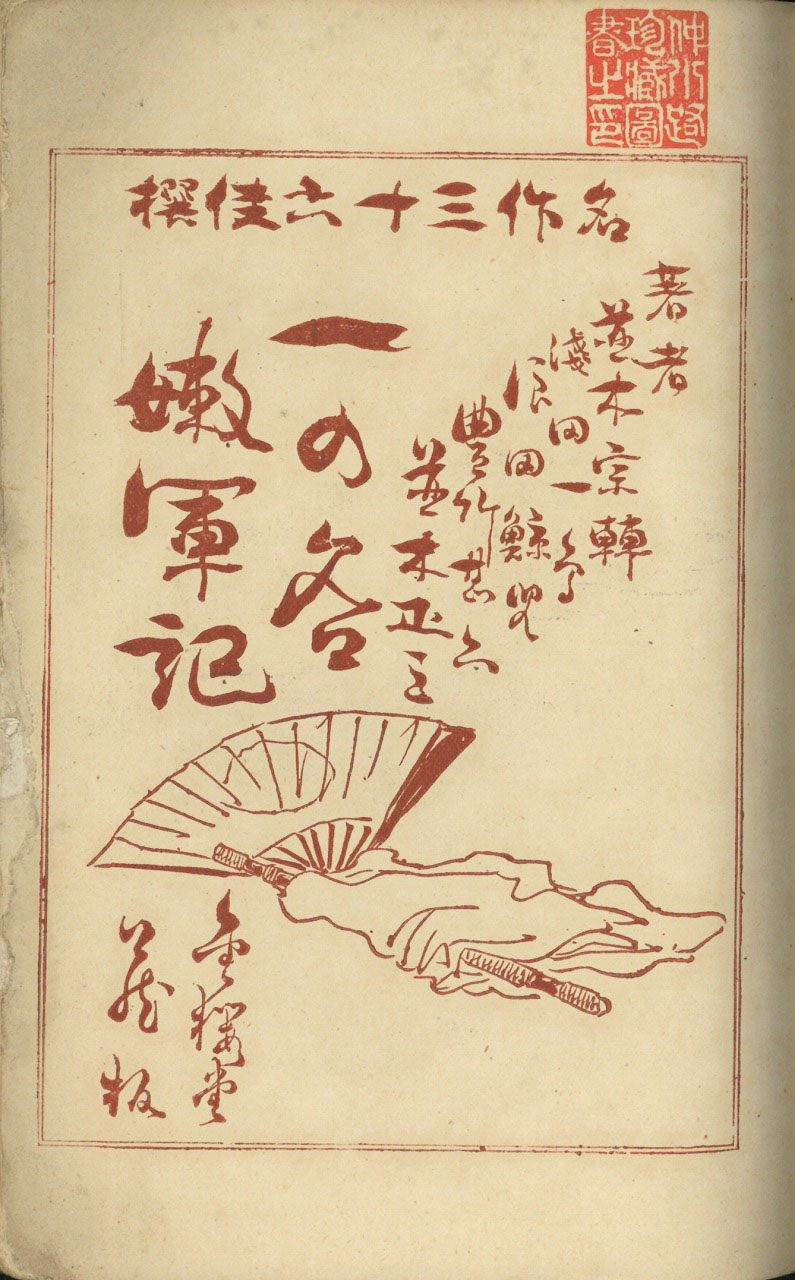 仲小路
珍藏圖
書之印
名作三十六佳撰
著者
並木宗輔
淺田一鳥
浪岡鯨児
豊竹甚六
並木正三
一の谷
嫩軍記
金櫻堂
藏板